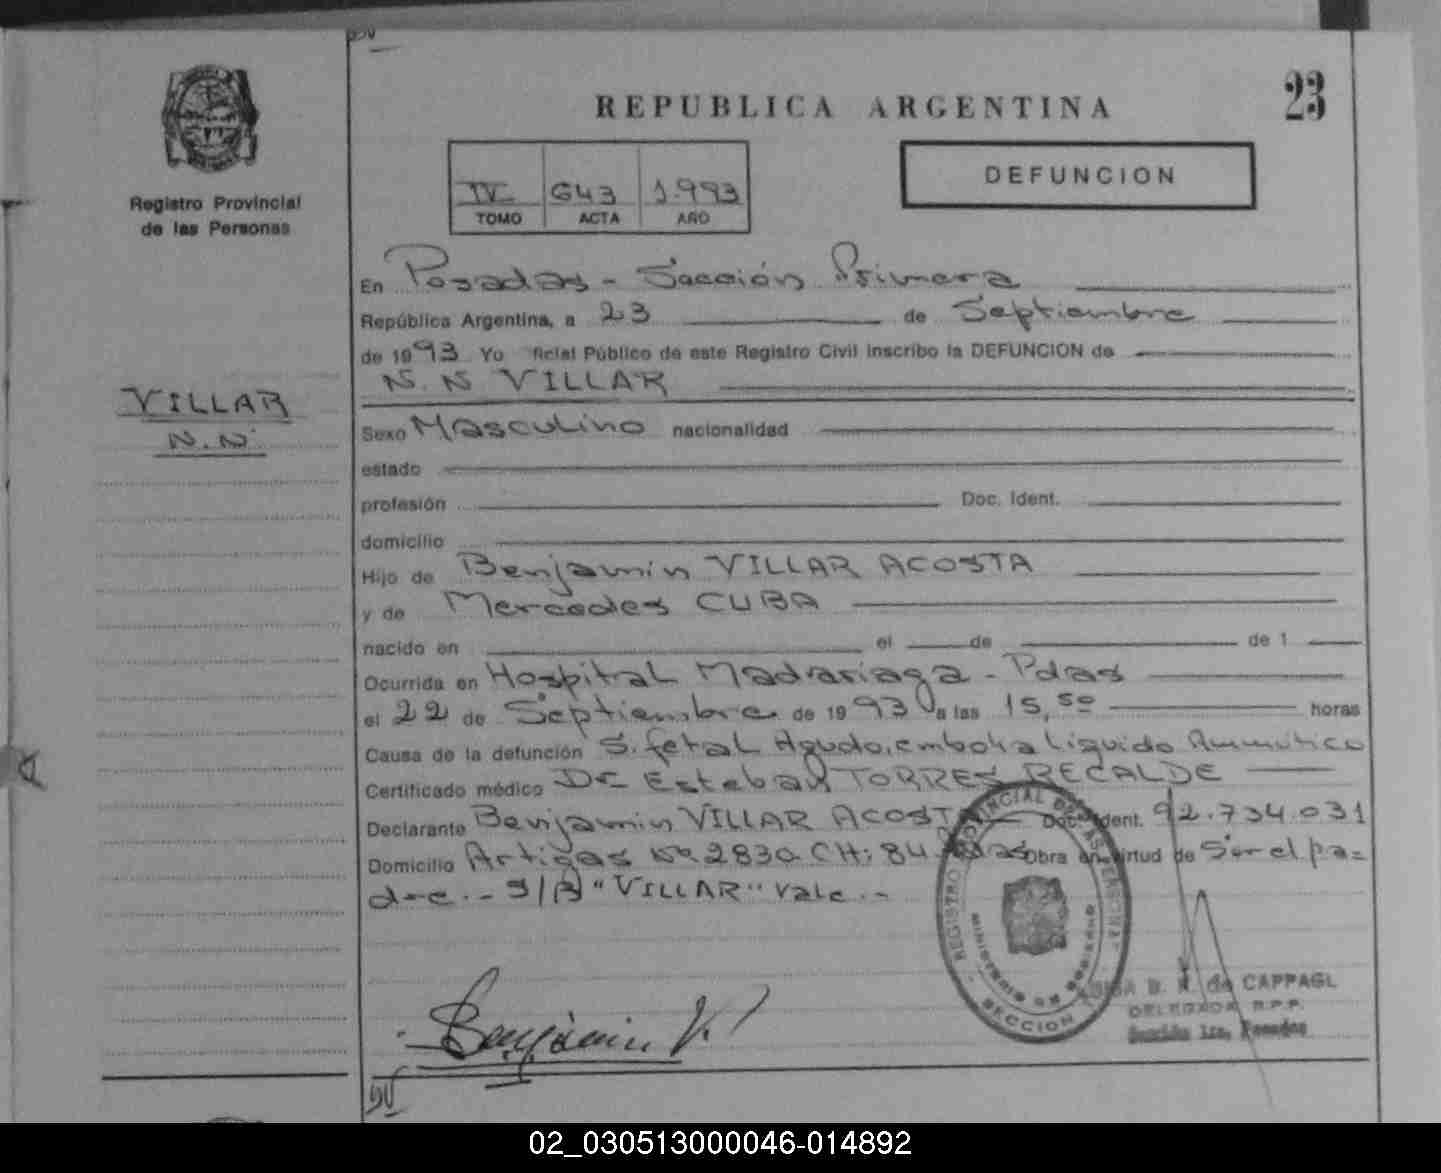 23
REPUBLICA ARGENTINA
DEFUNCION
Registro Provincial
de las Personas
IV 643 1.993
TOMO ACTA AÑO
En Posadas - Sección Primera
República Argentina, a 23 de Septiembre
de 1993 Yo ficial Público de este Registro Civil inscribo la DEFUNCION de
N. N VILLAR
VILLAR
N. N.
Sexo Masculino nacionalidad
estado
profesión Doc. Ident.
domicilio
Hijo de Benjamin VILLAR ACOSTA
y de Mercedes CUBA
nacido en el de de 1
Ocurrida en Hospital Madariaga - Pdas
el 22 de Septiembre de 1993 a las 15,50 horas
Causa de la defunción S. fetal Agudo, embolia liquido
Certificado médico Dr Esteban TORRES RECALDE
Declarante Benjamin VILLAR ACOSTA Doc. Ident. 92.734.031
Domicilio Artigas Nº 2830 CH: 84 Pdas Obra en virtud de Ser el pa=
dre. - S/B "VILLAR" Vale. -
REGISTRO PROVINCIAL DE LAS PERSONAS
MINISTERIO DE GOBIERNO
SECCION 1
B. N. de CAPPAGL
DELEGADA R.P.P.
Sección 1ra. Posadas
Benjamin V.
02_030513000046-014892